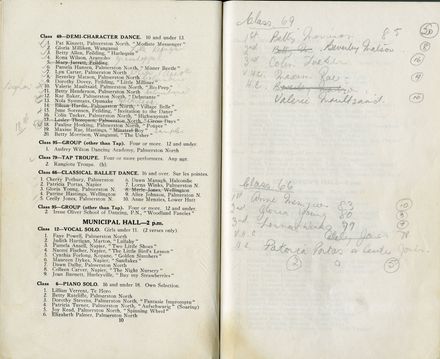 Class 69—DEMI-CHARACTER DANCE. 10 and under 13.
1. Pat Kinsett, Palmerston North, "Modiste Messenger"
2. Gloria Millikan, Wanganui
3. Betty Allen, Feilding, "Harlequin"
4. Rona Wilson, Aramoho
5. Mary Jarrett, Feilding
6. Pamela Hansen, Palmerston North, "Maner Beetle"
7. Lyn Carter, Palmerston North
8. Beverley Matson, Palmerston North
9. Dorothy Dovey, Feilding, "Little Milliner"
10. Valerie Maultsaid, Palmerston North, "Bo-Peep"
11. Betty Henderson, Palmerston North
12. Rae Baker, Palmerston North, "Debutante"
13. Nola Symonds, Opunake
14. Eileen Hoyle, Palmerston North, "Village Belle"
15. June Sorensen, Feilding, "Invitation to the Dance"
16. Colin Tucker, Palmerston North, "Highwayman"
18. Pauline Hosking, Palmerston North, "Potper"
19. Maxine Rae, Hastings, "Minstrel Boy"
20. Betty Morrison, Wanganui, "The Usher"
Class 95—GROUP (other than Tap). Four or more. 12 and under.
1. Audrey Wilton Dancing Academy, Palmerston North
Class 79—TAP TROUPE. Four or more performers. Any age.
2. Rangiora Troupe. (b).
Class 66—CLASSICAL BALLET DANCE. 16 and over. Sur les pointes.
1. Cherry Pethury, Palmerston
2. Patricia Portas, Napier
3. Gloria Young, Palmerston N.
4. Patrine Hastings, Wellington
5. Cecily Jones, Palmerston N.
6. Dawn Managh, Halcombe
7. Lorna Winks, Palmerston N.
8. Merle Jones, Wellington
9. Alice Johnson, Palmerston N.
10. Anne Menzies, Lower Hutt
Class 95—GROUP (other than Tap). Four or more. 12 and under.
2. Irene Oliver School of Dancing, P.N., "Woodland Fancies"
MUNICIPAL HALL—2 p.m.
Class 12—VOCAL SOLO. Girls under 11. (2 verses only).
1. Faye Powell, Palmerston North
2. Judith Hartigan, Marton, "Lullaby"
3. Pamela Ansell, Napier, "Two Little Shoes"
4. Naomi Fischer, Napier, "The Little Bird's Lesson"
5. Cynthia Forlong, Kopane, "Golden Slumbers"
6. Maureen Dykes, Napier, "Sandflakes"
7. Dawn Dalby, Palmerston North
8. Colleen Carver, Napier, "The Night Nursery"
9. Joan Burnett, Hurleyville, "Buy my Strawberries"
Class 6—PIANO SOLO. 16 and under 18. Own Selection.
1. Lillian Verrent, Te Horo
2. Betty Ratcliffe, Palmerston North
3. Dorothy Stevens, Palmerston North, "Fantasie Impromptu"
4. Patricia Turner, Palmerston North, "Aufschwung" (Soaring)
5. Joy Read, Palmerston North, "Spinning Wheel"
6. Elizabeth Palmer, Palmerston North
10
Class 69
1st Betty Morrison 85
2nd Beverley Matson
3rd Colin Tucker
V.H.C. Maxine Rae
Valerie Maultsaid
Class 66
1st Anne Menzies 83
2nd Gloria Young 80
3rd Lorna Winks 79
V.H.C. Cecily Jones 78
H.C. Patricia Portas